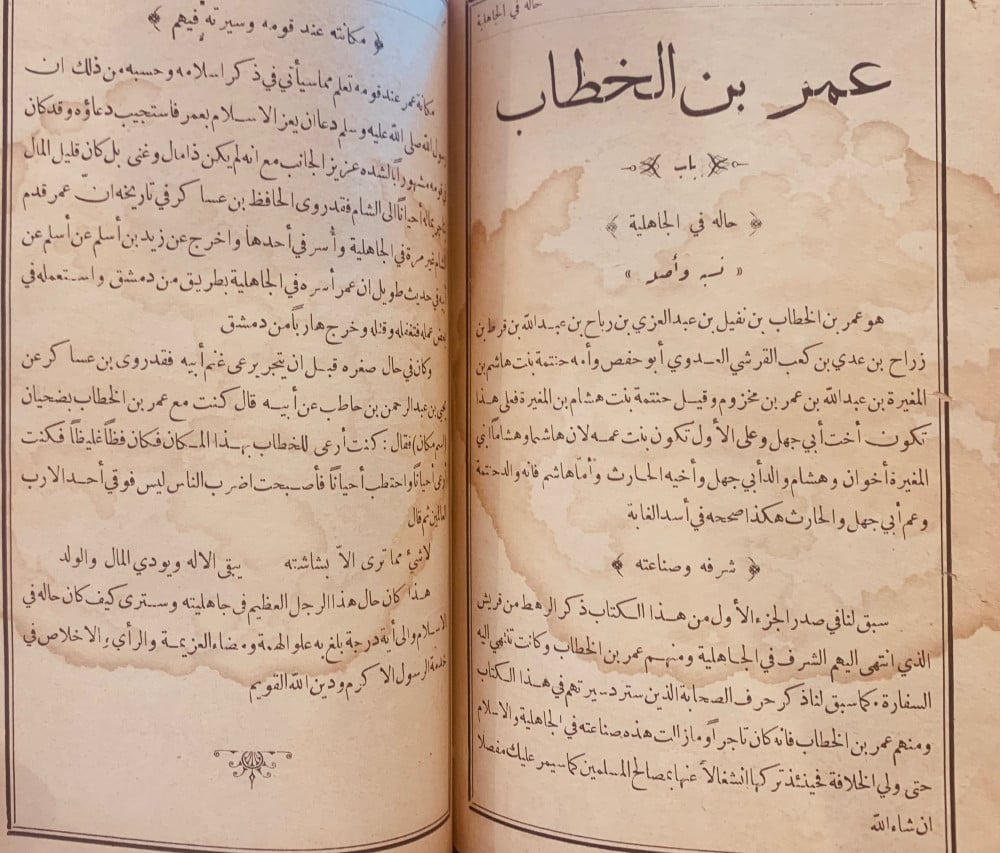 حاله في الجاهلية
عمر بن الخطاب
باب
﴿ حاله في الجاهلية ﴾
« نسبه وأصله »
هو عمر بن الخطاب بن نفيل بن عبد العزي بن رباح بن عبد الله بن قرط بن
زراح بن عدي بن كعب القرشي العدوي أبو حفص وأمه حنتمة بنت هاشم بن
المغيرة بن عبد الله بن عمر بن مخزوم وقيل حنتمة بنت هشام بن المغيرة فعلى هذا
تكون أخت أبي جهل وعلى الأول تكون بنت عمه لان هاشما وهشاما ابني
المغيرة أخوان وهشام والد أبي جهل وأخيه الحارث وأما هاشم فانه والد حنتمة
وعم أبي جهل والحارث هكذا صححه في أسد الغابة
﴿ شرفه وصناعته ﴾
سبق لنا في صدر الجزء الأول من هذا الكتاب ذكر الرهط من قريش
الذي انتهى اليهم الشرف في الجاهلية ومنهم عمر بن الخطاب وكانت تنتهي اليه
السفارة . كما سبق لنا ذكر حرف الصحابة الذين سترد سيرتهم في هذا الكتاب
ومنهم عمر بن الخطاب فانه كان تاجراً وما زالت هذه صناعته في الجاهلية والاسلام
حتى ولي الخلافة فحينئذ تركها انشغالاً عنها بمصالح المسلمين كما سيمر عليك مفصلا
ان شاء الله
﴿ مكانته عند قومه وسيرته فيهم ﴾
مكانة عمر عند قومه تعلم مما سيأتي في ذكر اسلامه وحسبه من ذلك ان
رسول الله صلى الله عليه وسلم دعا ان يعز الاسلام بعمر فاستجيب دعاؤه وقد كان
في قومه مشهوراً بالشده عزيز الجانب مع انه لم يكن ذا مال وغنى بل كان قليل المال
بماله أحياناً الى الشام فقد روى الحافظ بن عساكر في تاريخه انّ عمر قدم
الشام غير مرة في الجاهلية وأسر في أحدها واخرج عن زيد بن أسلم عن أسلم عن
أبيه في حديث طويل ان عمر أسره في الجاهلية بطريق من دمشق واستعمله في
بعض عمله فتغفله وقتله وخرج هارباً من دمشق
وكان في حال صغره قبل ان يتجر يرعى غنم أبيه فقد روى بن عساكر عن
يحيى بن عبد الرحمن بن حاطب عن أبيه قال كنت مع عمر بن الخطاب بضجنان
(اسم مكان) فقال : كنت أرعى للخطاب بهذا المكان فكان فظاً غليظاً فكنت
أرعى أحياناً واحتطب أحياناً فأصبحت اضرب الناس ليس فوقي أحد الا رب
العالمين ثم قال
لا شئ مما ترى الاّ بشاشته يبقى الاله ويودي المال والولد
هذا كان حال هذا الرجل العظيم في جاهليته وسترى كيف كان حاله في
الاسلام والى أية درجة بلغ به علو الهمة ومضاء العزيمة والرأي والاخلاص في
خدمة الرسول الاكرم ودين الله القويم